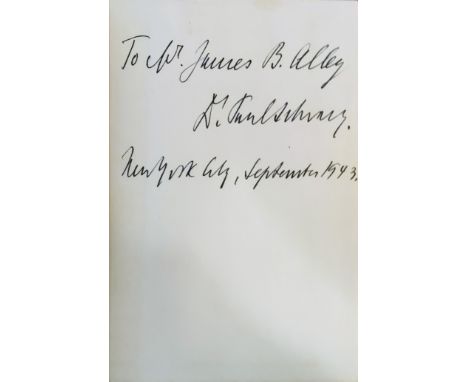 To Mr. James B. Alley
Dr. Paul Schwarz.
New York City, September 1943.